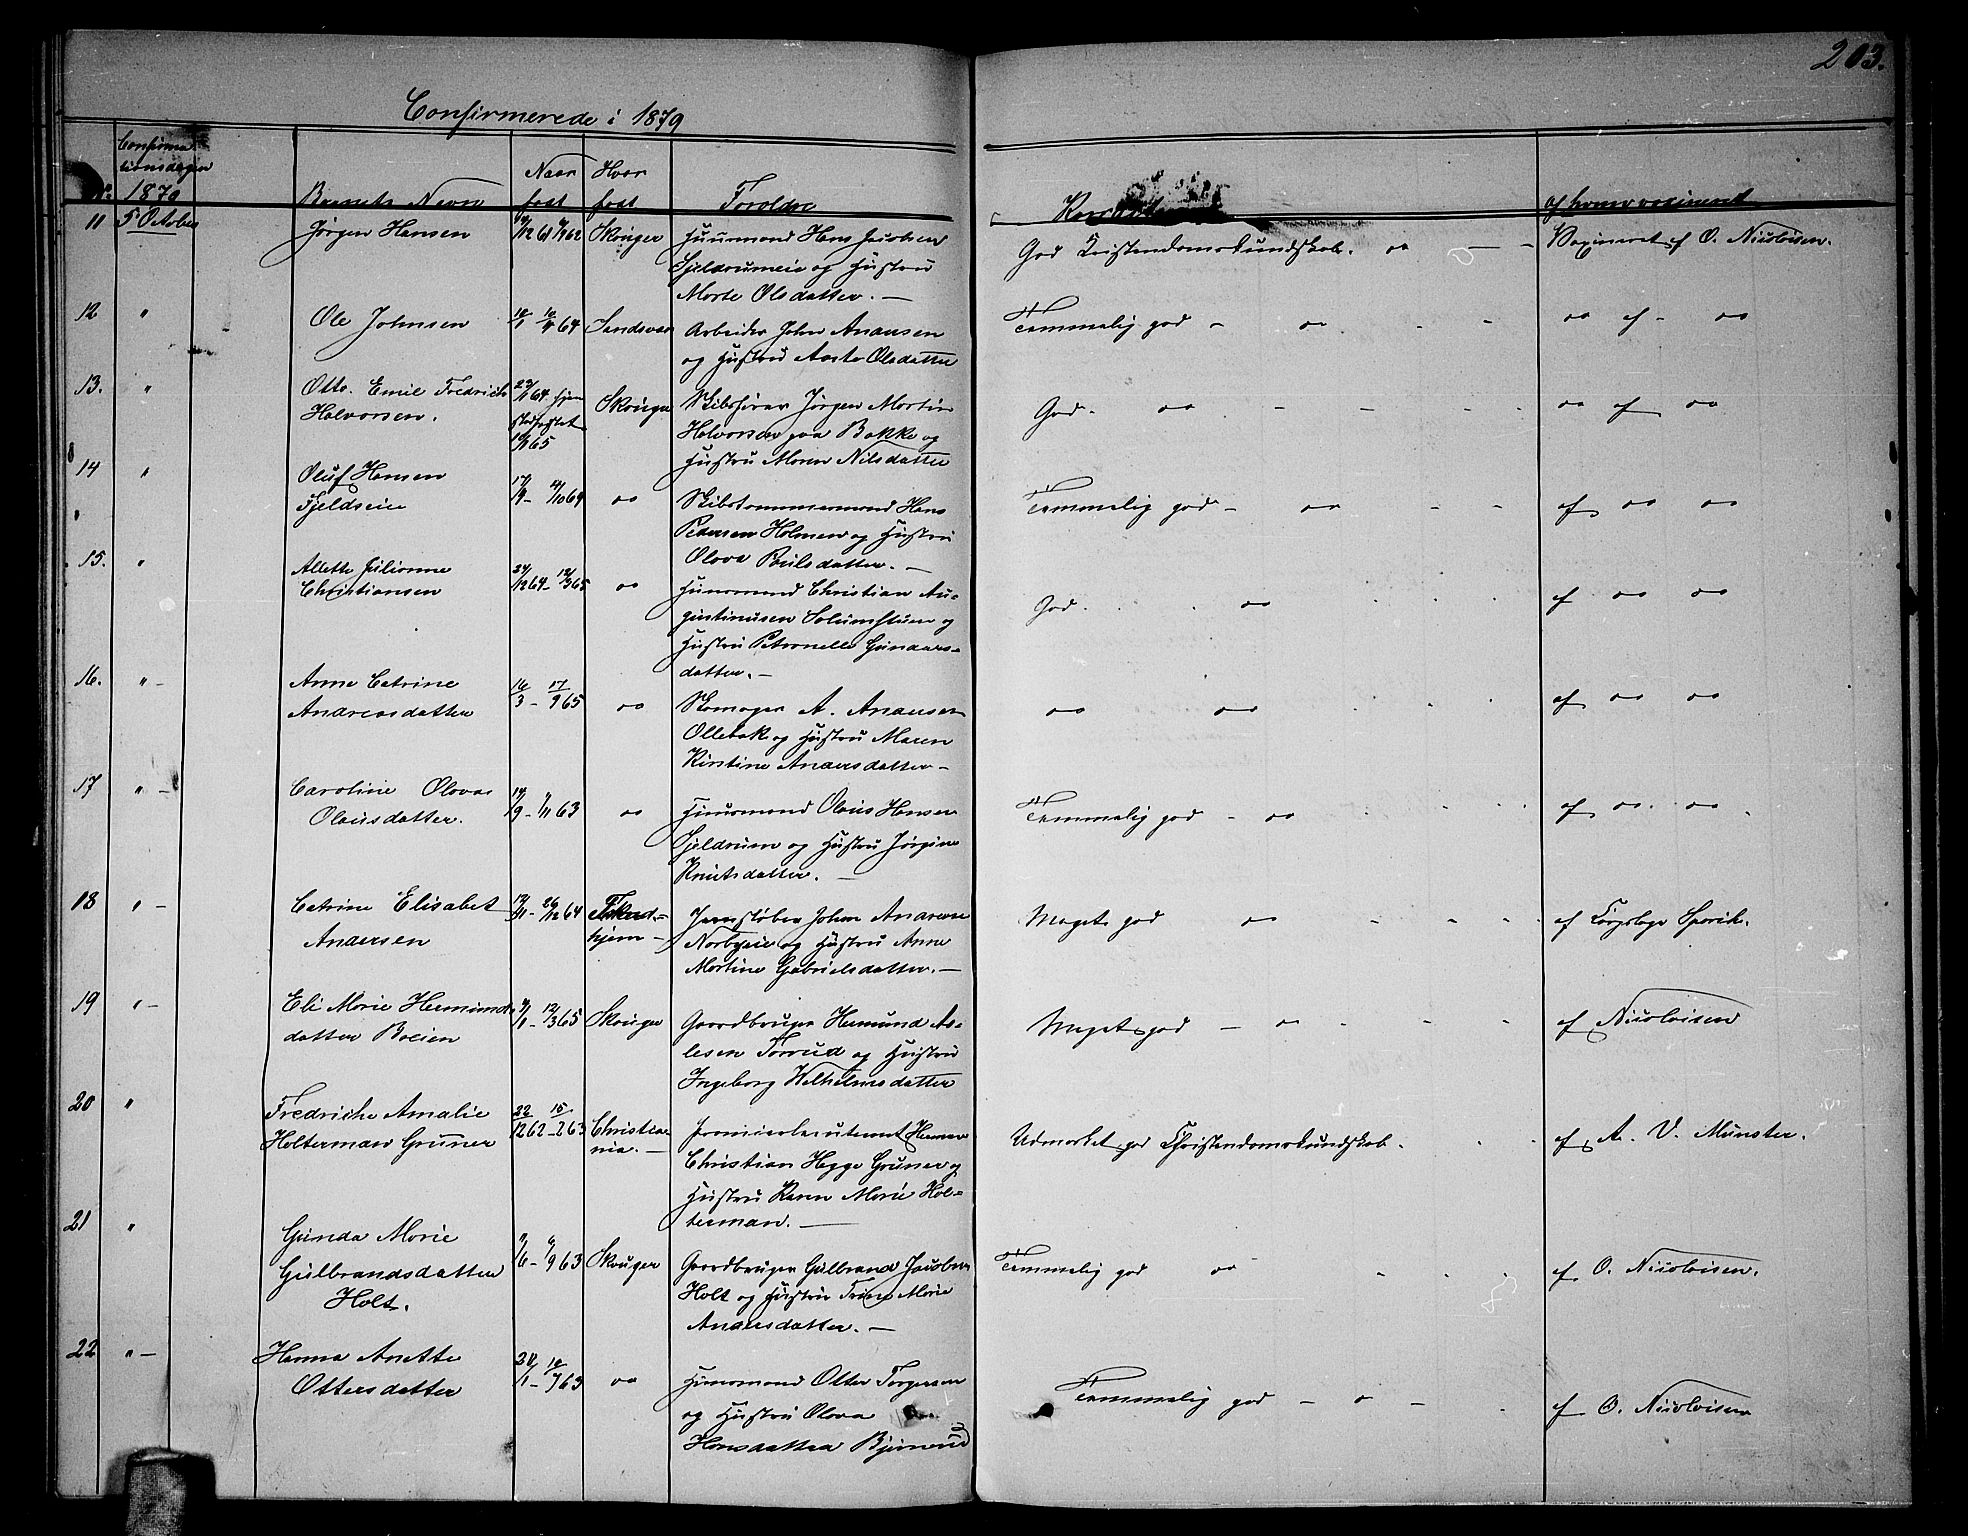 203.
Confirmerede i 1879
No. Confirmationsdagen 1879 Barnets Navn Naar født Hvor født Forældre
af hvem vaccineret
11 5 October Jørgen Hansen 62 Skouger Huusmand Hans Jacobsen
Fjeldrumeie og Hustru
Marte Olsdatter. —
God Kristendomskundskab. Vaccineret af O. Nicolaisen.
12 " Ole Johnsen 64 Sandsvær Arbeider John Andersen
og Hustru Olsdatter
Temmelig god — " — " af — "
13. " Otto Emil Fredrich 64 hjem
Halvorsen. 65 Skouger Skibsfører Jørgen Martin
Halvorsen paa Bakke og
Hustru Maren Nilsdatter
God. " " af "
14 " Oluf Hansen
Fjeldseie 17/9 - 64 " Skibstømmermand Hans
Pedersen Holmen og Hustru
Olava Poulsdatter. —
Temmelig god — " af " "
15. " Alette Julianne
Christiansen 24/12 64 - 12/3 65 " Huusmand Christian Au=
gustinusen Solumstuen og
Hustru Petronelle Gunders=
datter. —
God. " af " "
16. " — Anne Catrine
Andreasdatter 16/3 - 17/9 65 " Skomager A. Andersen
Ollebak og Hustru Maren
Kirstine Andersdatter —
" " af " "
17 " — Caroline Olava
Olausdatter. 14/9 - 1/11 63 " Huusmand Olaus Hansen
Fjeldrum og Hustru Jørgine
Knutsdatter. —
Temmelig god — " af " "
18 " — Catrine Elisabet
Andersen 13/11 - 26/12 64 Jernstøber Johan Andersen
Norbyeie og Hustru Anne
Martine Gabrielsdatter. —
Meget god " af
19 " — Eli Marie Hermunds
datter Bveien 9/1 - 12/3 65 Skouger Gaardbruger Hermund As=
lesen Tørrud og Hustru
Ingeborg Wilhelmsdatter
Meget god — " af Nicolaisen
20 " Fredriche Amalie
Holterman Gruner 22/12 62 - 15/2 63 Christia=
nia. — Premierleieutenant Herman
Christian Hegge Gruner og
Hustru Karen Marie Hol=
terman. —
Udmærket god Christendomskundskab. af A. V. Münster.
21 " Gunda Marie
Gulbrandsdatter
Holt. 9/6 - 6/9 63 Skouger Gaardbruger Gulbrand Jacobsen
Holt og Hustru Marie
Andersdatter. —
Temmelig god " af O. Nicolaisen.
22 " — Hanna Anette
Ottersdatter 63 " Huusmand Otter Torgersen
og Hustru Olava
Hansdatter Bjørnrud
Temmelig god — " — af O. Nicolaisen